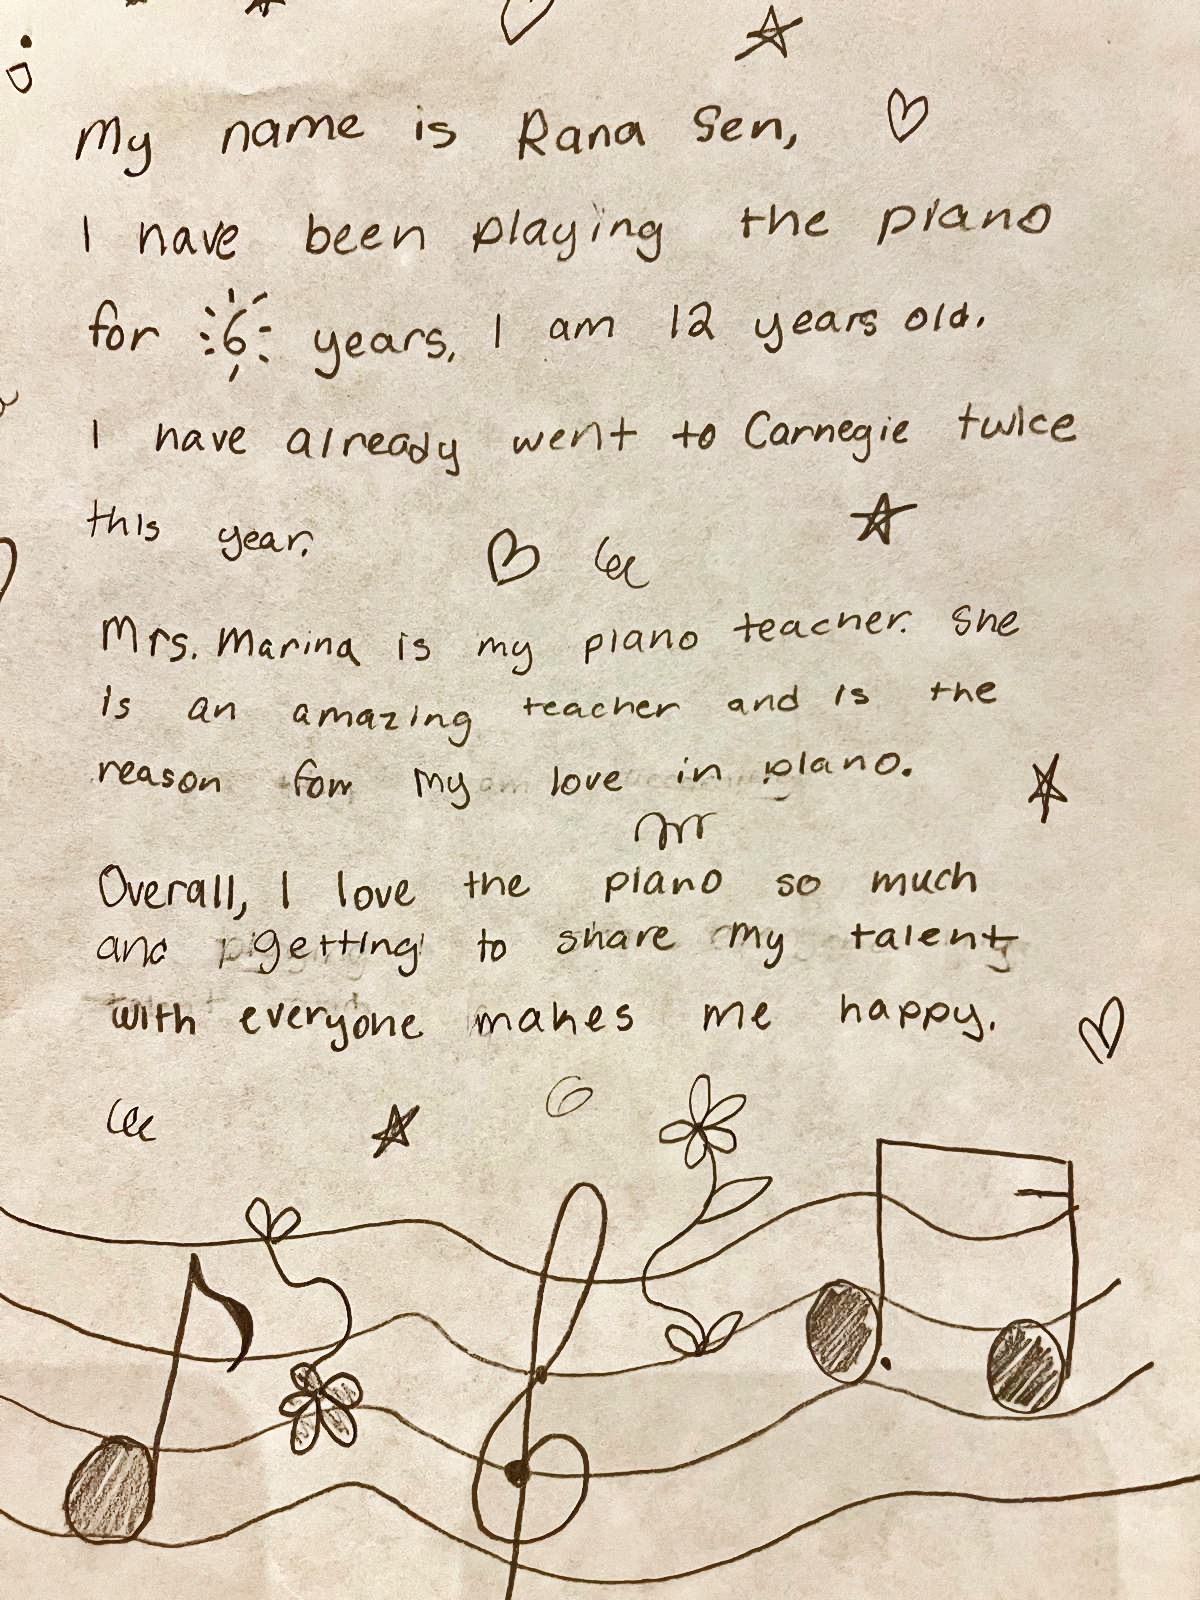 My name is Rana Sen,
I have been playing the piano
for 6 years, I am 12 years old.
I have already went to Carnegie twice
this year.
Mrs. Marina is my piano teacher. She
is an amazing teacher and is the
reason for my love in piano.
Overall, I love the piano so much
and getting to share my talent
with everyone makes me happy.